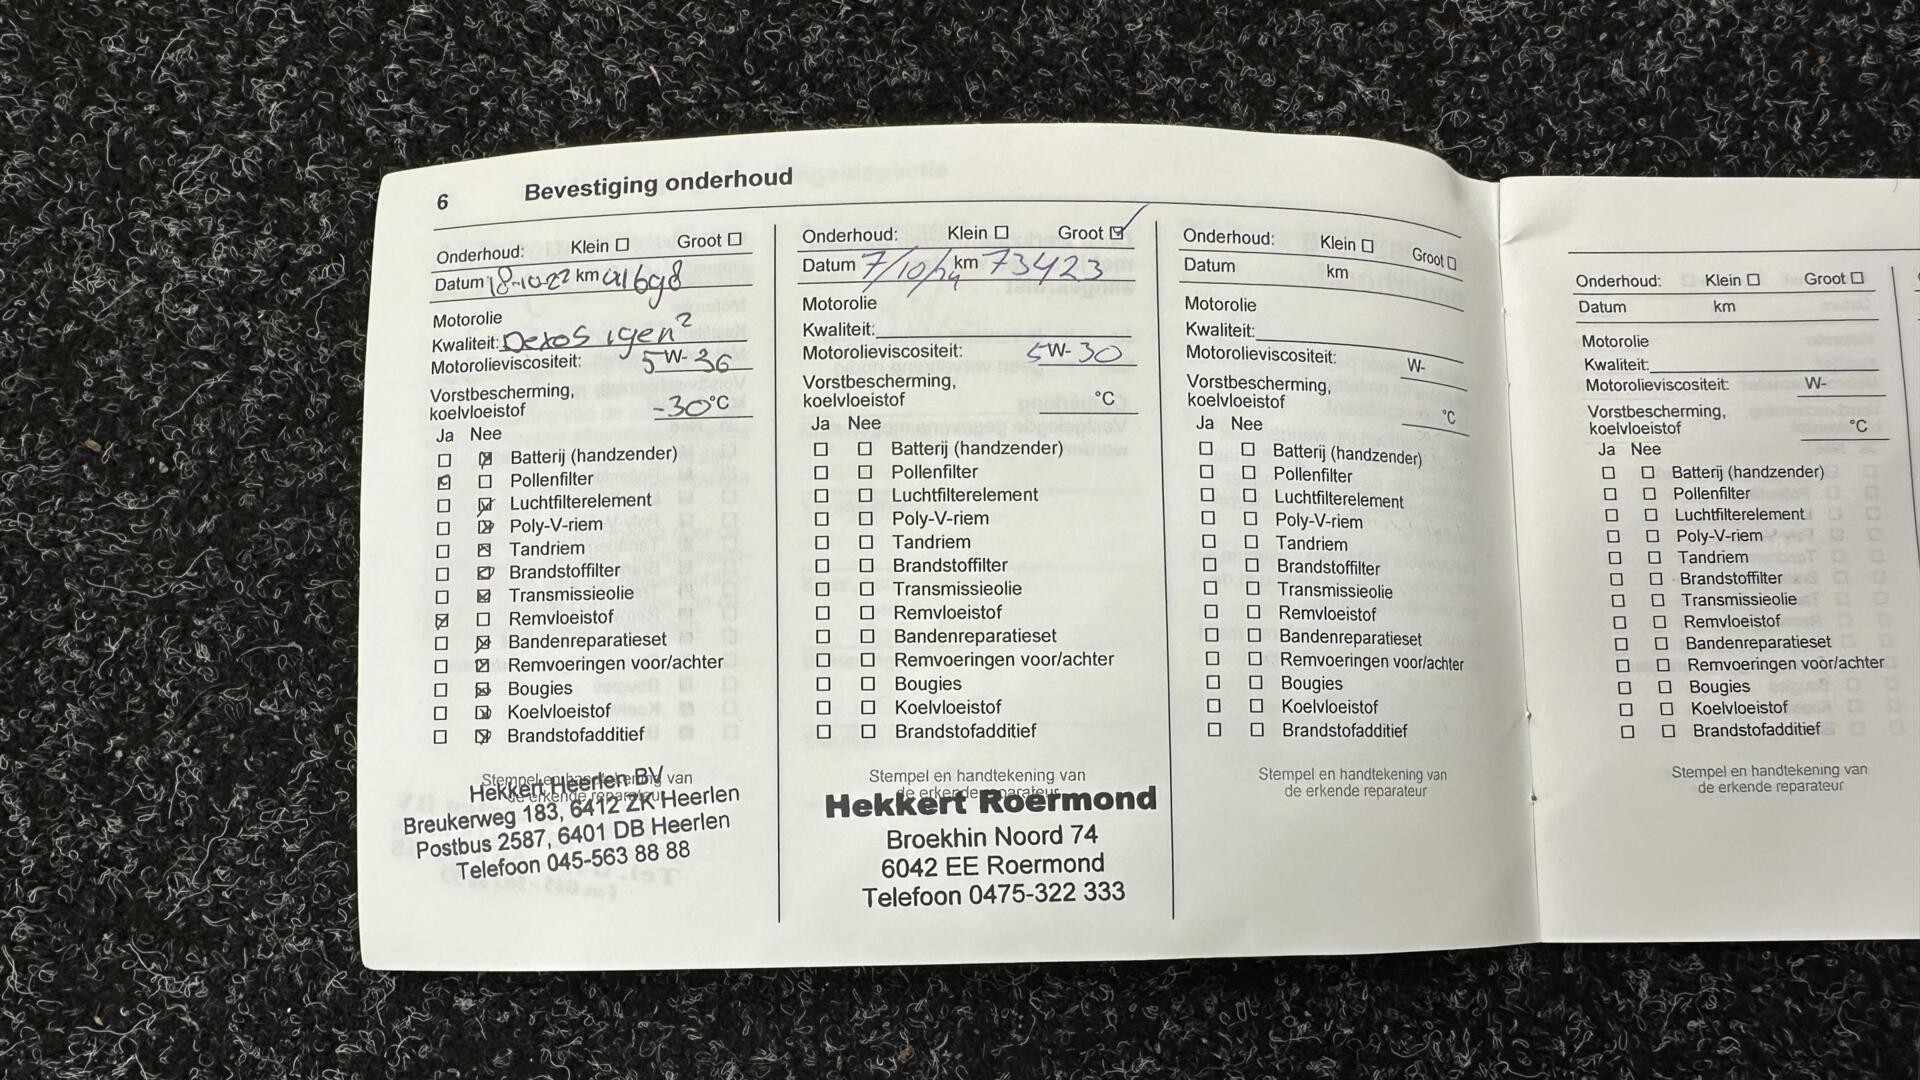 6 Bevestiging onderhoud
Onderhoud: Klein Groot
Datum 18-10-22 km
Motorolie
Kwaliteit: Dexos 1gen²
Motorolieviscositeit: 5W-30
Vorstbescherming,
koelvloeistof -30°C
Ja Nee
Batterij (handzender)
Pollenfilter
Luchtfilterelement
Poly-V-riem
Tandriem
Brandstoffilter
Transmissieolie
Remvloeistof
Bandenreparatieset
Remvoeringen voor/achter
Bougies
Koelvloeistof
Brandstofadditief
Stempel en handtekening van
de erkende reparateur
Hekkert Heerlen BV
Breukerweg 183, 6412 ZK Heerlen
Postbus 2587, 6401 DB Heerlen
Telefoon 045-563 88 88
Onderhoud: Klein Groot
Datum 7/10/24 km 73423
Motorolie
Kwaliteit:
Motorolieviscositeit: 5W-30
Vorstbescherming,
koelvloeistof °C
Ja Nee
Batterij (handzender)
Pollenfilter
Luchtfilterelement
Poly-V-riem
Tandriem
Brandstoffilter
Transmissieolie
Remvloeistof
Bandenreparatieset
Remvoeringen voor/achter
Bougies
Koelvloeistof
Brandstofadditief
Stempel en handtekening van
de erkende reparateur
Hekkert Roermond
Broekhin Noord 74
6042 EE Roermond
Telefoon 0475-322 333
Onderhoud: Klein Groot
Datum km
Motorolie
Kwaliteit:
Motorolieviscositeit: W-
Vorstbescherming,
koelvloeistof °C
Ja Nee
Batterij (handzender)
Pollenfilter
Luchtfilterelement
Poly-V-riem
Tandriem
Brandstoffilter
Transmissieolie
Remvloeistof
Bandenreparatieset
Remvoeringen voor/achter
Bougies
Koelvloeistof
Brandstofadditief
Stempel en handtekening van
de erkende reparateur
Onderhoud: Klein Groot
Datum km
Motorolie
Kwaliteit:
Motorolieviscositeit: W-
Vorstbescherming,
koelvloeistof °C
Ja Nee
Batterij (handzender)
Pollenfilter
Luchtfilterelement
Poly-V-riem
Tandriem
Brandstoffilter
Transmissieolie
Remvloeistof
Bandenreparatieset
Remvoeringen voor/achter
Bougies
Koelvloeistof
Brandstofadditief
Stempel en handtekening van
de erkende reparateur